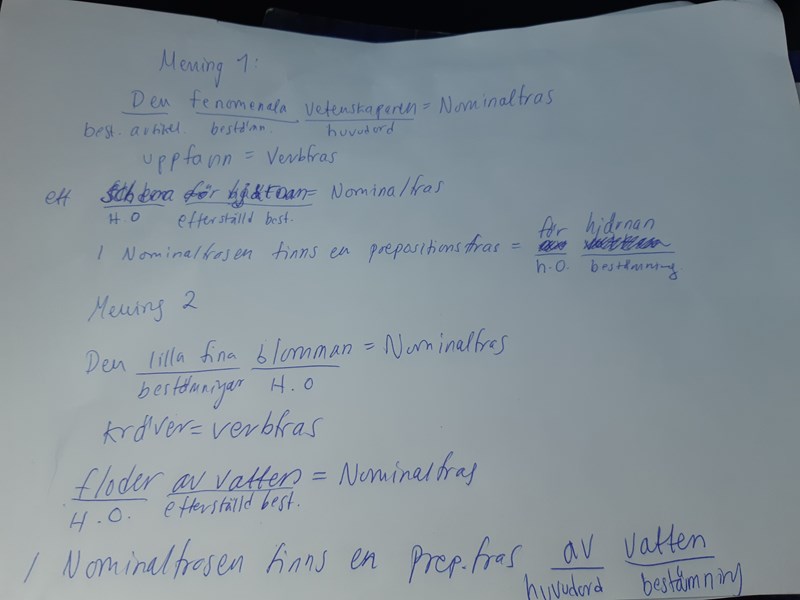 Mening 1:
Den fenomenala vetenskaparen = Nominalfras
best. artikel. bestäm. huvudord
uppfann = Verbfras
ett för hjärnan = Nominalfras
H. O efterställd best.
I Nominalfrasen finns en prepositionsfras = för hjärnan
h.O. bestämning.
Mening 2
Den lilla fina blomman = Nominalfras
bestämningar H. O
kräver = verbfras
floder av vatten = Nominalfras
H. O. efterställd best.
I Nominalfrasen finns en prep.fras av vatten
huvudord bestämning